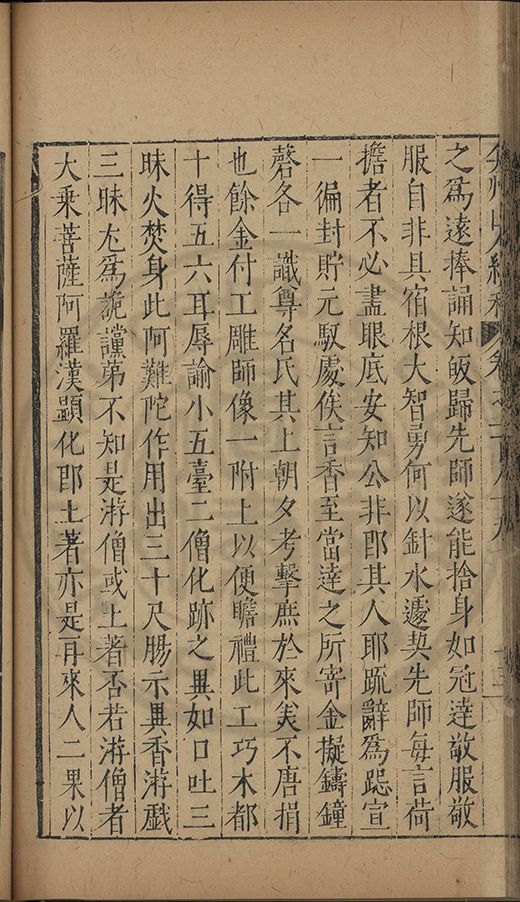 弇州山人續稿 卷之一百八十九 十三
之爲遠捧誦知皈歸先師遂能捨身如冠達敬服敬
服自非具宿根大智勇何以針水遽契先師每言荷
擔者不必盡眼底安知公非卽其人耶䟽辭爲跽宣
一徧封貯元馭處俟言香至當達之所寄金擬鑄鐘
磬各一識尊名氏其上朝夕考擊庶於來美不唐捐
也餘金付工雕師像一附上以便瞻禮此工巧木都
十得五六耳辱諭小五臺二僧化跡之異如口吐三
昧火焚身此阿難陀作用出三十尺腸示異香游戱
三昧尤爲詭讜苐不知是游僧或土著否若游僧者
大乗菩薩阿羅漢顯化卽土著亦是再來人二果以